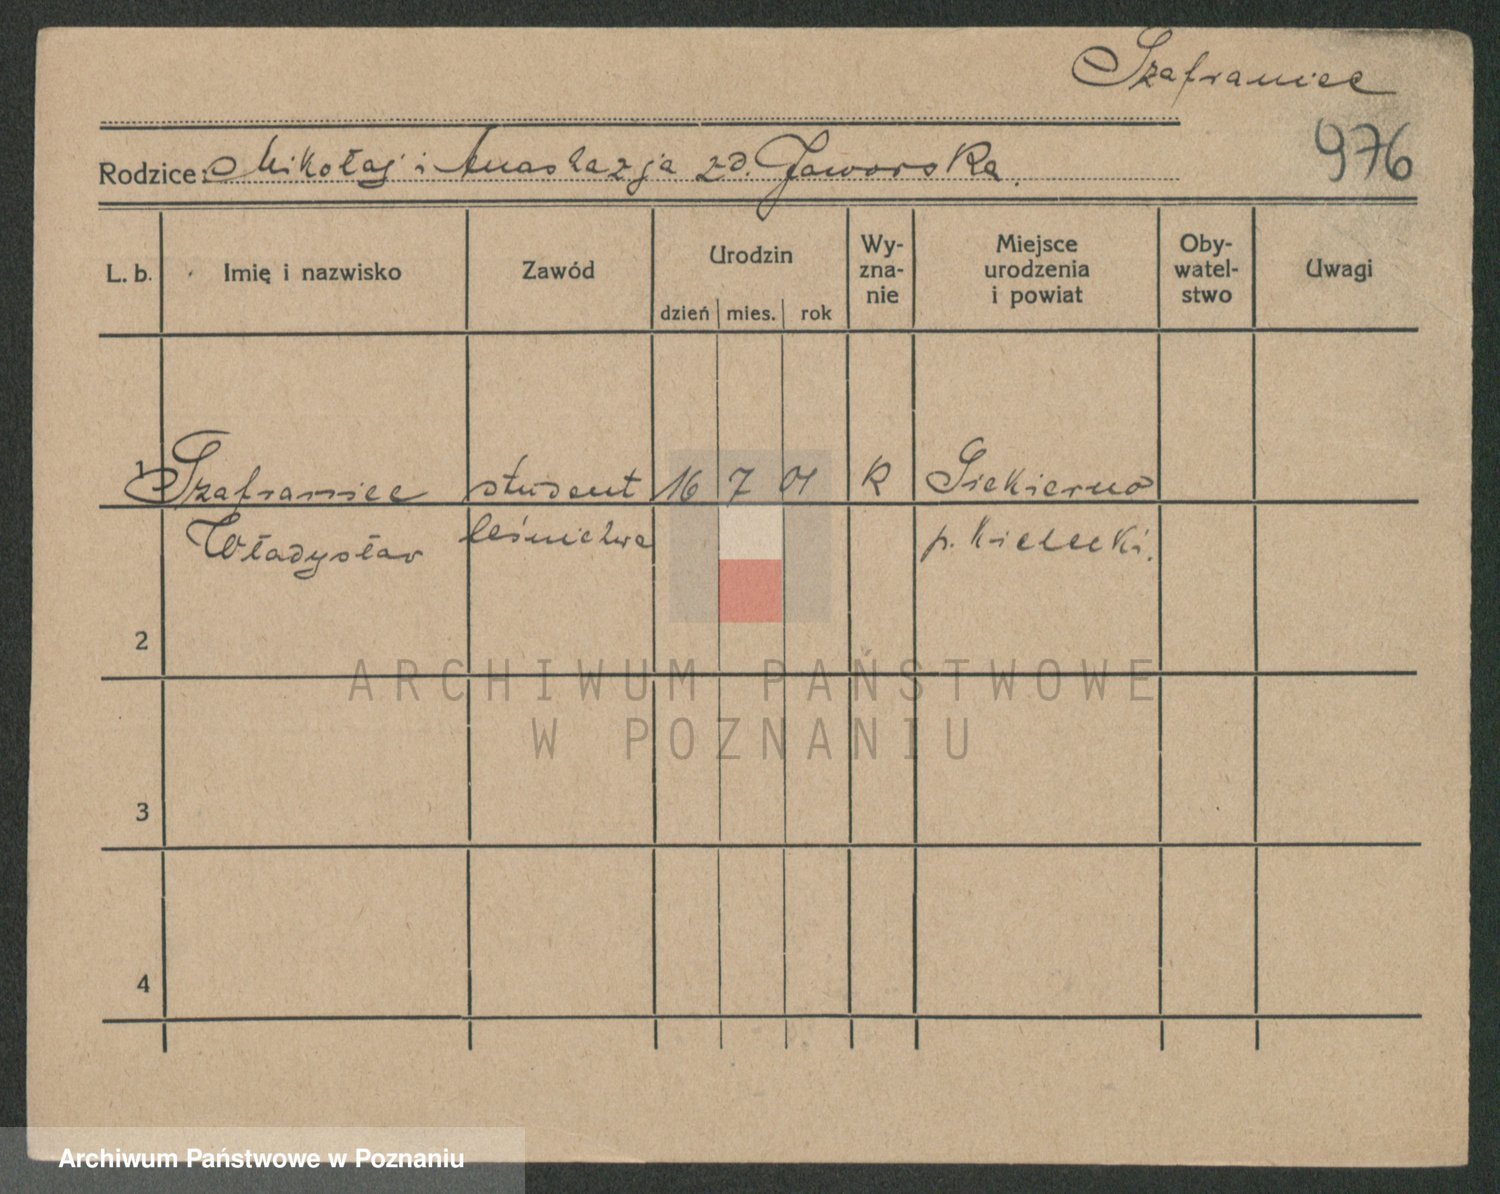 Szafraniec
976
Rodzice: Mikołaj i Anastazja zd. Jaworska.
L. b. Imię i nazwisko Zawód Urodzin dzień mies. rok Wy-zna-nie Miejsce urodzenia i powiat Oby-watel-stwo Uwagi
1 Szafraniec student 16 7 01 R Siekierno
Władysław leśnictwa p. Kielecki.
2
ARCHIWUM PAŃSTWOWE
W POZNANIU
3
4
Archiwum Państwowe w Poznaniu